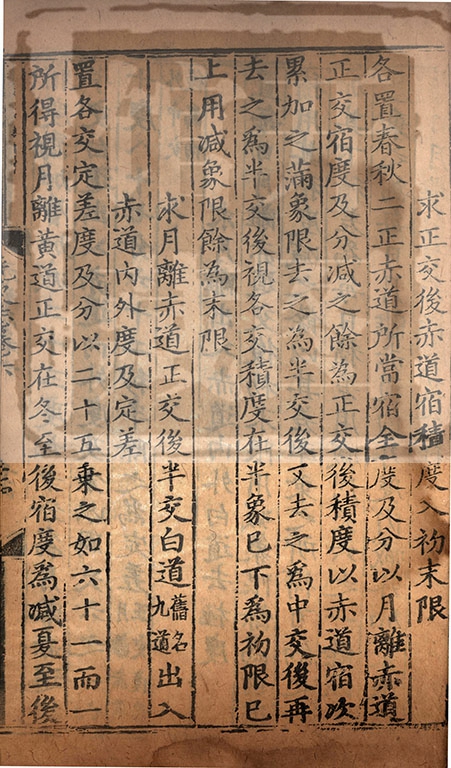 求正交後赤道宿積度入初末限
各置春秋二正赤道所當宿全度及分以月離赤道
正交宿度及分減之餘為正交後積度以赤道宿次
累加之滿象限去之為半交後又去之為中交後再
去之為半交後視各交積度在半象已下為初限已
上用減象限餘為末限
求月離赤道正交後半交白道舊名九道出入
赤道內外度及定差
置各交定差度及分以二十五乗之如六十一而一
所得視月離黃道正交在冬至後宿度為減夏至後